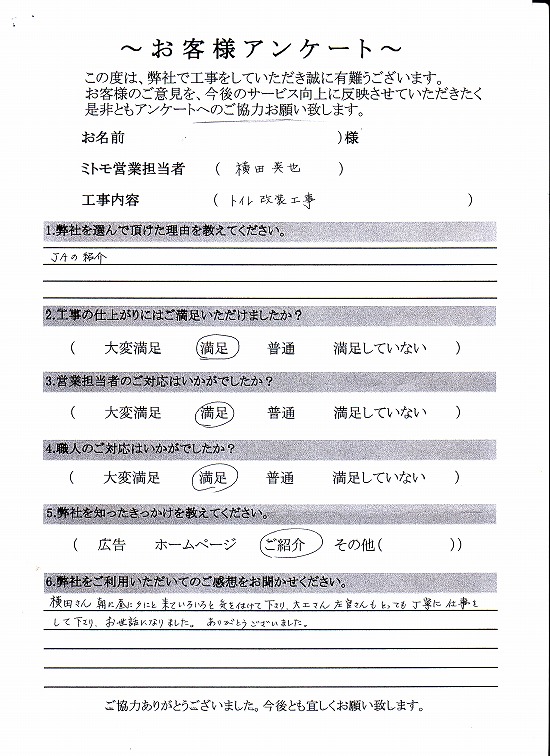 ～お客様アンケート～
この度は、弊社で工事をしていただき誠に有難うございます。
お客様のご意見を、今後のサービス向上に反映させていただきたく
是非ともアンケートへのご協力お願い致します。
お名前 )様
ミトモ営業担当者 ( 横田 英也 )
工事内容 ( トイレ改装工事 )
1.弊社を選んで頂けた理由を教えてください。
JAの紹介
2.工事の仕上がりにはご満足いただけましたか？
( 大変満足 満足 普通 満足していない )
3.営業担当者のご対応はいかがでしたか？
( 大変満足 満足 普通 満足していない )
4.職人のご対応はいかがでしたか？
( 大変満足 満足 普通 満足していない )
5.弊社を知ったきっかけを教えてください。
( 広告 ホームページ ご紹介 その他( ))
6.弊社をご利用いただいてのご感想をお聞かせください。
横田さん 朝に昼に夕にと来ていろいろと気を付けて下さり、大工さん左官さんもとっても丁寧に仕事を
して下さり、お世話になりました。ありがとうございました。
ご協力ありがとうございました。今後とも宜しくお願い致します。